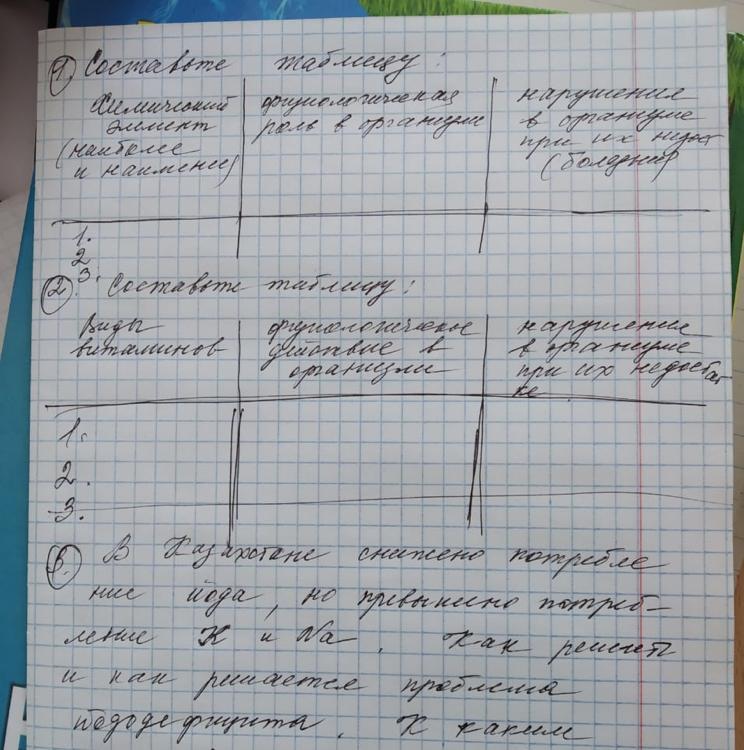 1 Составьте таблицу:
Химический элемент (наиболее и наименее)
физиологическая роль в организме
нарушения в организме при их недост (болезни)
1.
2
3.
2. Составьте таблицу:
Виды витаминов
физиологическое действие в организме
нарушения в организме при их недостатке
1.
2.
3.
3. В Казахстане снижено потребле
ние йода, но превышено потреб-
ление К и Na. Как решить
и как решается проблема
йододефицита. К каким